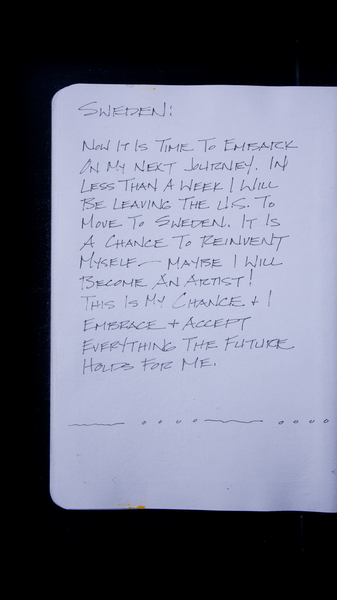 SWEDEN:
NOW IT IS TIME TO EMBARK
ON MY NEXT JOURNEY. IN
LESS THAN A WEEK I WILL
BE LEAVING THE U.S. TO
MOVE TO SWEDEN. IT IS
A CHANCE TO REINVENT
MYSELF — MAYBE I WILL
BECOME AN ARTIST!
THIS IS MY CHANCE + I
EMBRACE + ACCEPT
EVERYTHING THE FUTURE
HOLDS FOR ME.